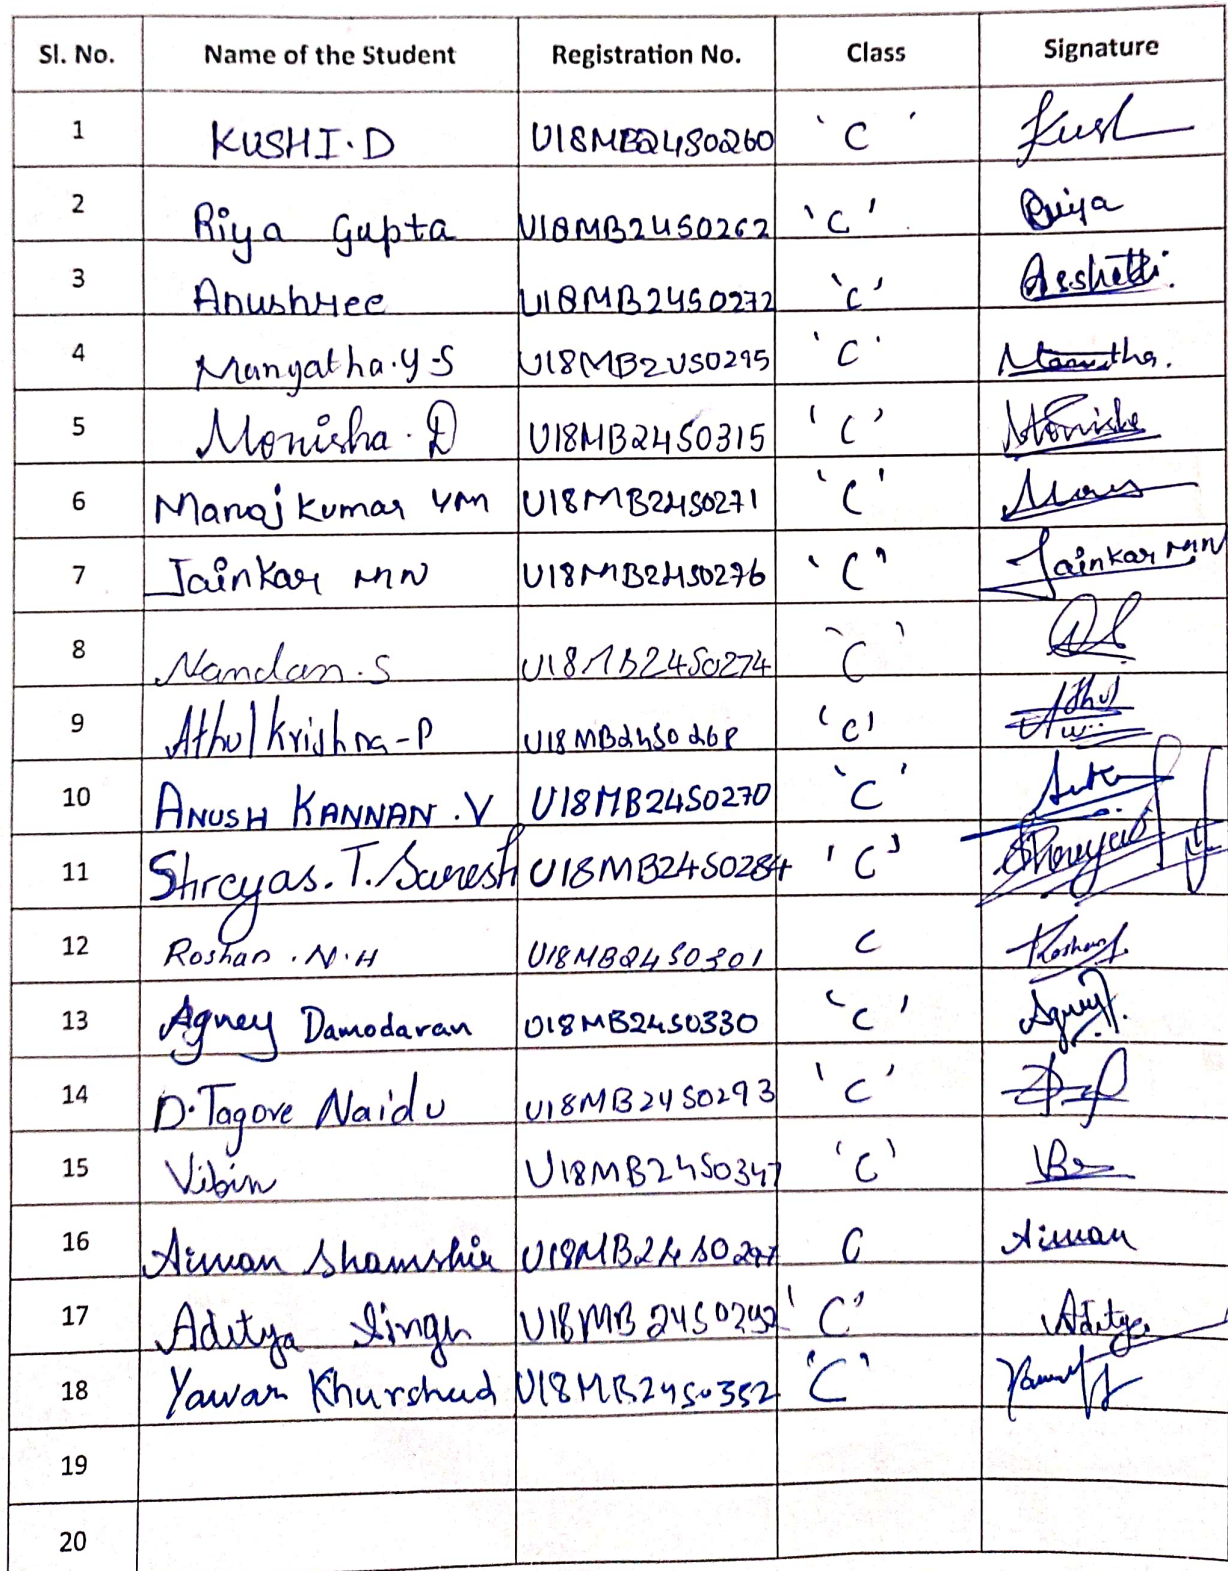 Sl. No. Name of the Student Registration No. Class Signature
1 KUSHI.D U18MB24S0260 'C' Kush
2 Riya Gupta U18MB24S0262 'C' Riya
3 Anushree U18MB24S0272 'C' Asshetti
4 Manyatha.Y.S U18MB24S0295 'C'
5 Monisha.D U18MB24S0315 'C' Monisha
6 Manoj Kumar YM U18MB24S0271 'C'
7 Jainkar MN U18MB24S0276 'C' Jainkar MN
8 Nandan.S U18MB24S0274 'C'
9 Athul Krishna-P U18MB24S0268 'C' Athul
10 ANUSH KANNAN.V U18MB24S0270 'C'
11 Shreyas.T.Suresh U18MB24S0284 'C' Shreyas
12 Roshan.N.H U18MB24S0301 C Roshan
13 Agney Damodaran U18MB24S0330 'C' Agney
14 D.Tagore Naidu U18MB24S0293 'C'
15 Vibin U18MB24S0347 'C'
16 Aiman Shamshir U18MB24S0297 C Aiman
17 Aditya Singh U18MB24S0292 'C' Aditya
18 Yawar Khurshud U18MB24S0352 'C'
19
20